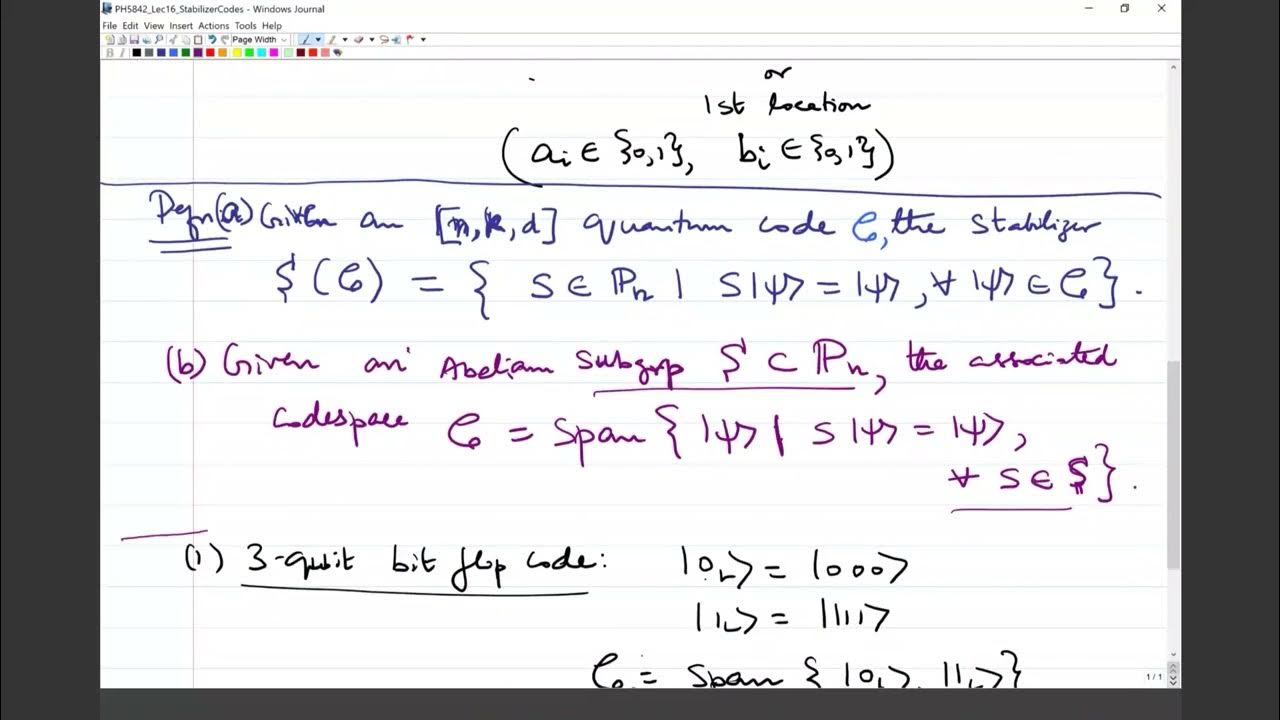 PH5842_Lec16_StabilizerCodes - Windows Journal
File Edit View Insert Actions Tools Help
Page Width
or
1st location
(aᵢ ∈ {0,1}, bᵢ ∈ {0,1})
Defn(a) Given an [n,k,d] quantum code 𝒞, the stabilizer
$(𝒞) = { S ∈ ℙₙ | S|ψ⟩ = |ψ⟩, ∀ |ψ⟩ ∈ 𝒞}.
(b) Given an Abelian subgrp $ ⊂ ℙₙ, the associated
codespace 𝒞 = span { |ψ⟩ | S|ψ⟩ = |ψ⟩,
∀ S ∈ $}.
(1) 3-qubit bit flip code: |0_L⟩ = |000⟩
|1_L⟩ = |111⟩
𝒞 = span { |0_L⟩, |1_L⟩}
1/1